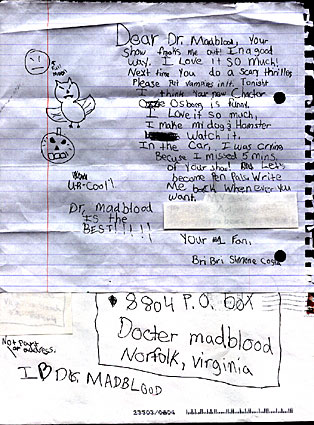 Dear Dr. Madblood, your
show freaks me out! In a good
way. I love it SO much!
Next time you do a scary thriller
Please Put vampires in it. Tonight
I think your new Charctor
Osberg is funny.
I Love it so much,
I make my dog & Hamster
Watch it.
In the Car, I was crying
Becuse I missed 5 mins.
of your show! And Let's
become Pen Pals. Write
Me back whenever you
want.
Your #1 Fan,
Bri Bri Simone
UR-Cool!
Dr. madblood
IS the
BEST!!!!!
8804 P.O. box
Docter madblood
Norfolk, virginia
Not Part
of address.
I Dr. MADBLOOD
23502/0804